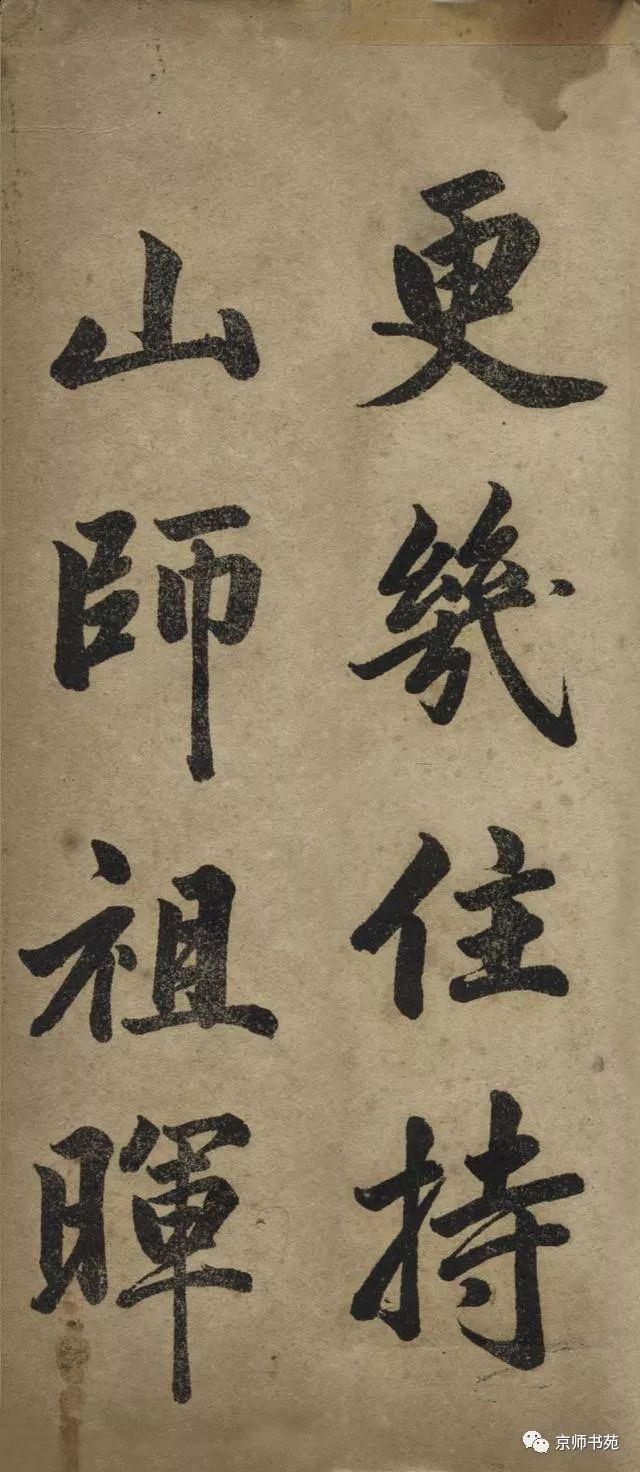 更幾住持
山師祖暉
京师书苑